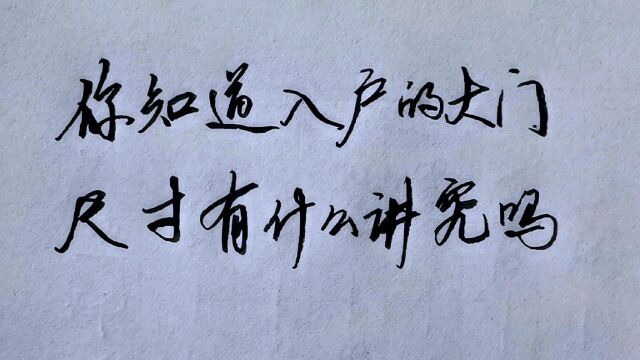 你知道入户的大门
尺寸有什么讲究吗